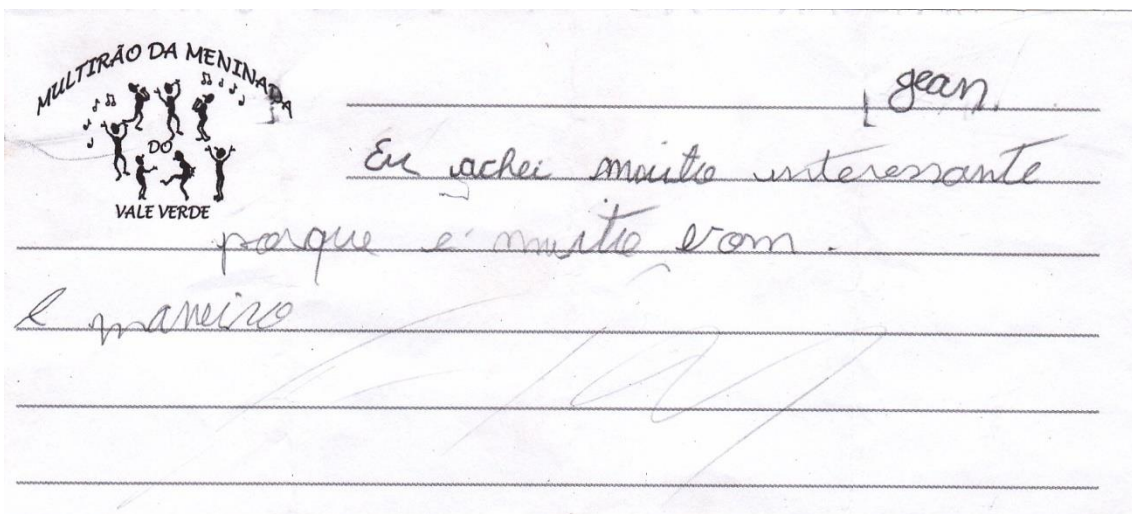 MULTIRÃO DA MENINADA
DO
VALE VERDE
Jean.
Eu achei muito interessante
porque é muito bom.
e maneiro